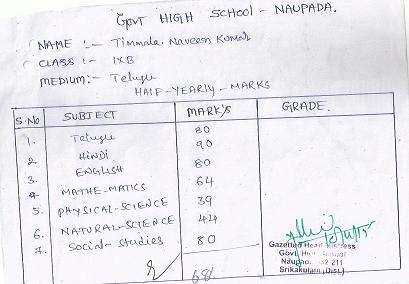 GOVT HIGH SCHOOL - NAUPADA.
NAME :- Timmala. Naveen Kumar
CLASS :- IXB
MEDIUM:- Telugu
HALF-YEARLY-MARKS
S.No SUBJECT MARK'S GRADE.
1. Telugu 80
2 HINDI 90
3. ENGLISH 80
4 MATHE-MATICS 64
5. PHYSICAL-SCIENCE 39
6. NATURAL-SCIENCE 44
7. Social-studies 80
Gazetted Head Mistress
Govt. High School
Naupada 532 211
Srikakulam (Dist.)